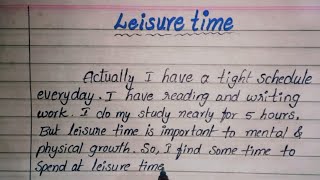 Leisure time
Actually I have a tight schedule
everyday. I have reading and writing
work. I do my study nearly for 5 hours.
But leisure time is important to mental &
physical growth. So, I find some time to
Spend at leisure time